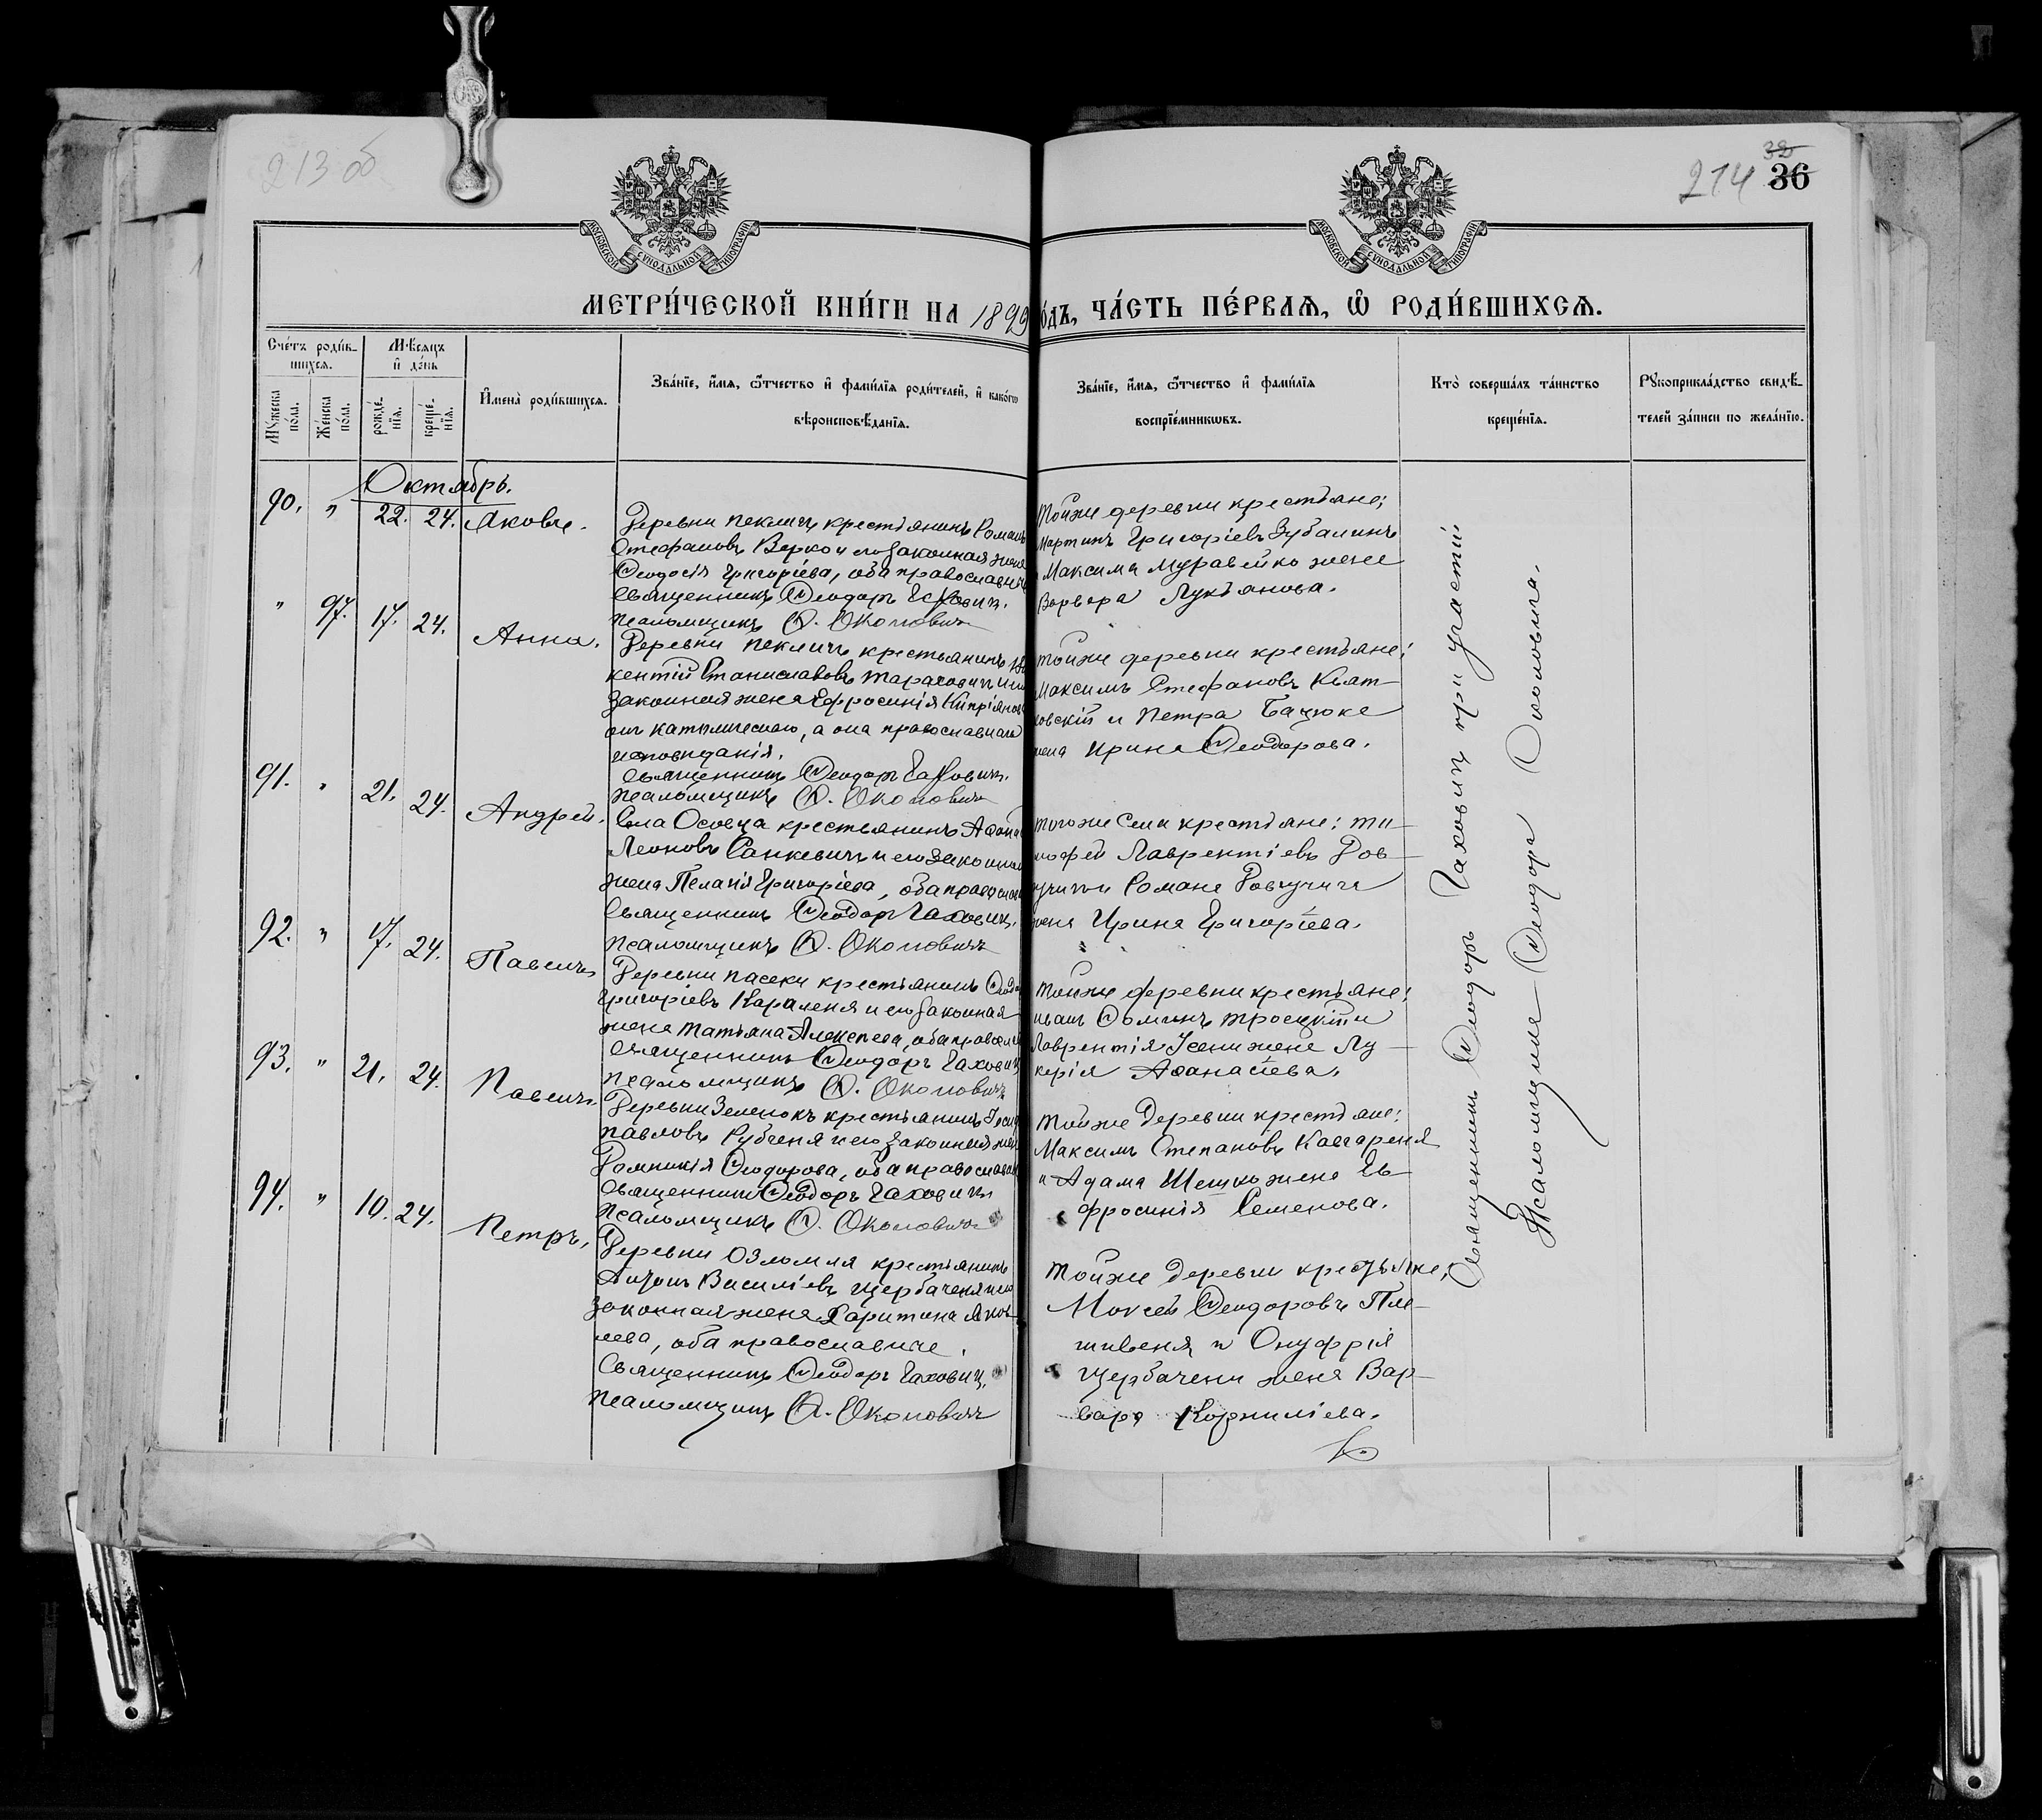 213 об
214
36
МОСКОВСКОЙ СѴНОДАЛЬНОЙ ТИПОГРАФІИ
МОСКОВСКОЙ СѴНОДАЛЬНОЙ ТИПОГРАФІИ
МЕТРИ́ЧЕСКОЙ КНИ́ГИ НА 1899
О́ДЪ, ЧА́СТЬ ПЕ́РВАѦ, Ѡ҆ РОДИ́ВШИХСѦ.
Сче́тъ роди́в-
шихсѧ.
Мѣ́сѧцъ
и҆ де́нь
Мꙋ́жеска по́ла.
Же́нска по́ла.
рожде́-
нїѧ.
креще́-
нїѧ.
И҆мена̀ роди́вшихсѧ.
Зва́нїе, и҆́мѧ, ѻ҆́тчество и҆ фамилїѧ роди́телей, и҆ како́гѡ
вѣроисповѣ́данїѧ.
Зва́нїе, и҆́мѧ, ѻ҆́тчество и҆ фами́лїѧ
воспрїе́мникѡвъ.
Кто̀ соверша́лъ та́инство
креще́нїѧ.
Рꙋкоприкла́дство свидѣ́-
телей за́писи по жела́нїю.
Октябрь.
90. " 22. 24. Яковъ.
Деревни Пекличъ крестьянинъ Романъ
Стефановъ Верко и его законная жена
Ѳеодосія Григоріева, оба православные
Священникъ Ѳеодоръ
Псаломщикъ Ѳ. Околовичъ
Тойже деревни крестьяне;
Мартинъ Григоріевъ Зубалинъ
Максима Муравейко жена
Варвара Лукьянова.
" 97. 17. 24. Анна.
Деревни Пекличъ крестьянинъ
кентій Станиславовъ Тарасовичъ и его
законная жена Ефросинія Кипріянов
онъ католическаго, а она православнаго
исповѣданія.
Священникъ Ѳеодоръ Гаховичъ.
Псаломщикъ Ѳ. Околовичъ
Тойже деревни крестьяне:
Максимъ Стефановъ Квят-
ковскій и Петра Бацюка
жена Ирина Ѳеодорова.
91. " 21. 24. Андрей.
Села Осовца крестьянинъ Аѳана
Леоновъ Санкевичъ и его законная
жена Пелагія Григоріева, оба православ
Священникъ Ѳеодоръ Гаховичъ.
Псаломщикъ Ѳ. Околовичъ
Тогоже села крестьяне: Ти-
мофей Лаврентіевъ Ров-
Романа
жена Ирина Григоріева.
"
92. " 17. 24. Павелъ
Деревни Пасеки крестьянинъ Ѳеодоръ
Григоріевъ Караленя и его законная
жена Татьяна Алексѣева, оба православ
Священникъ Ѳеодоръ Гаховичъ
Псаломщикъ Ѳ. Околовичъ
Тойже деревни крестьяне:
Иванъ Ѳоминъ Троецкій и
Лаврентія Ясени жена Лу-
керія Аѳанасіева.
93. " 21. 24. Павелъ
Деревни Зеленокъ крестьянинъ
Павловъ Рубченя и его законная жена
Домникія Ѳеодорова, оба православн
Священникъ Ѳеодоръ Гаховичъ
Псаломщикъ Ѳ. Околовичъ
Тойже деревни крестьяне:
Максимъ Степановъ
и Адама Шешко жена Ев-
фросинія Семенова.
94. " 10. 24. Петръ,
Деревни Озломля крестьянинъ
Антонъ Василіевъ Щербаченя и его
законная жена Харитина Яков-
лева, оба православные.
Священникъ Ѳеодоръ Гаховичъ.
Псаломщикъ Ѳ. Околовичъ
Тойже деревни крестьяне;
Моисей Ѳеодоровъ Пле-
и Онуфрія
Щербачени жена Вар-
вара Корниліева.
Священникъ Ѳеодоръ Гаховичъ при участіи
Псаломщика Ѳеодора Околовича.